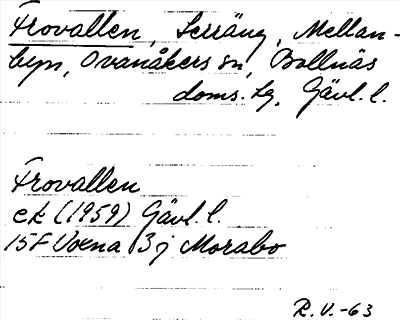 Frovallen, Serräng, Mellan-
byn, Ovanåkers sn, Bollnäs
doms. lg, Gävl. l.
Frovallen
ek (1959) Gävl. l.
15F Voxna 3j Morabo
R.V.-63